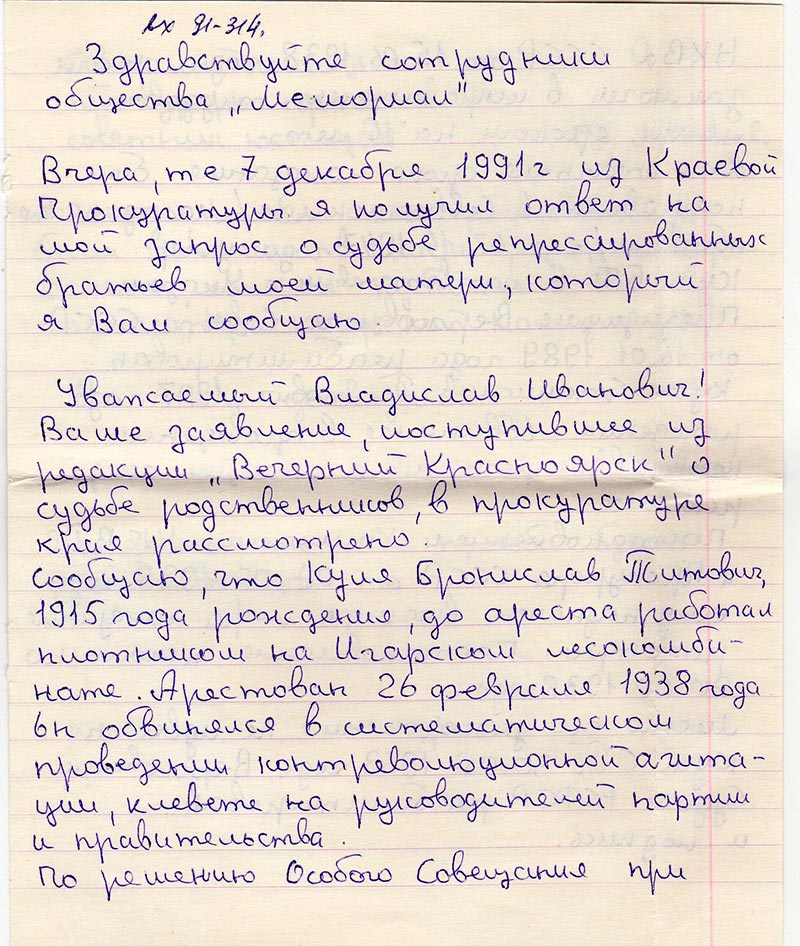 вх 91-314.
Здравствуйте сотрудники
общества „Мемориал"
Вчера, т е 7 декабря 1991г из Краевой
Прокуратуры я получил ответ на
мой запрос о судьбе репрессированных
братьев моей матери, который
я Вам сообщаю
Уважаемый Владислав Иванович!
Ваше заявление, поступившее из
редакции „Вечерний Красноярск" о
судьбе родственников, в прокуратуре
края рассмотрено.
Сообщаю, что Куля Бронислав Титович,
1915 года рождения, до ареста работал
плотником на Игарском лесокомби-
нате. Арестован 26 февраля 1938 года
Он обвинялся в систематическом
проведении контреволюционной агита-
ции, клевете на руководителей партии
и правительства.
По решению Особого Совещания при